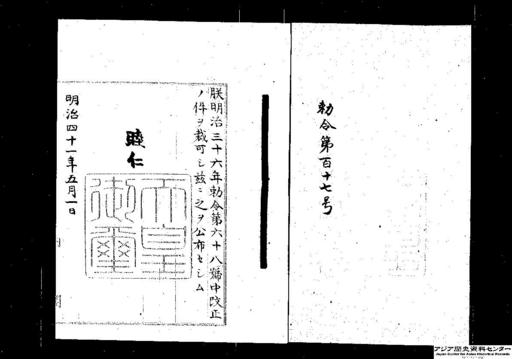 勅令第百十七号
朕明治三十六年勅令第六十八號中改正
ノ件ヲ裁可シ茲ニ之ヲ公布セシム
睦仁
天皇御璽
明治四十一年五月一日
アジア歴史資料センター
Japan Center for Asian Historical Records